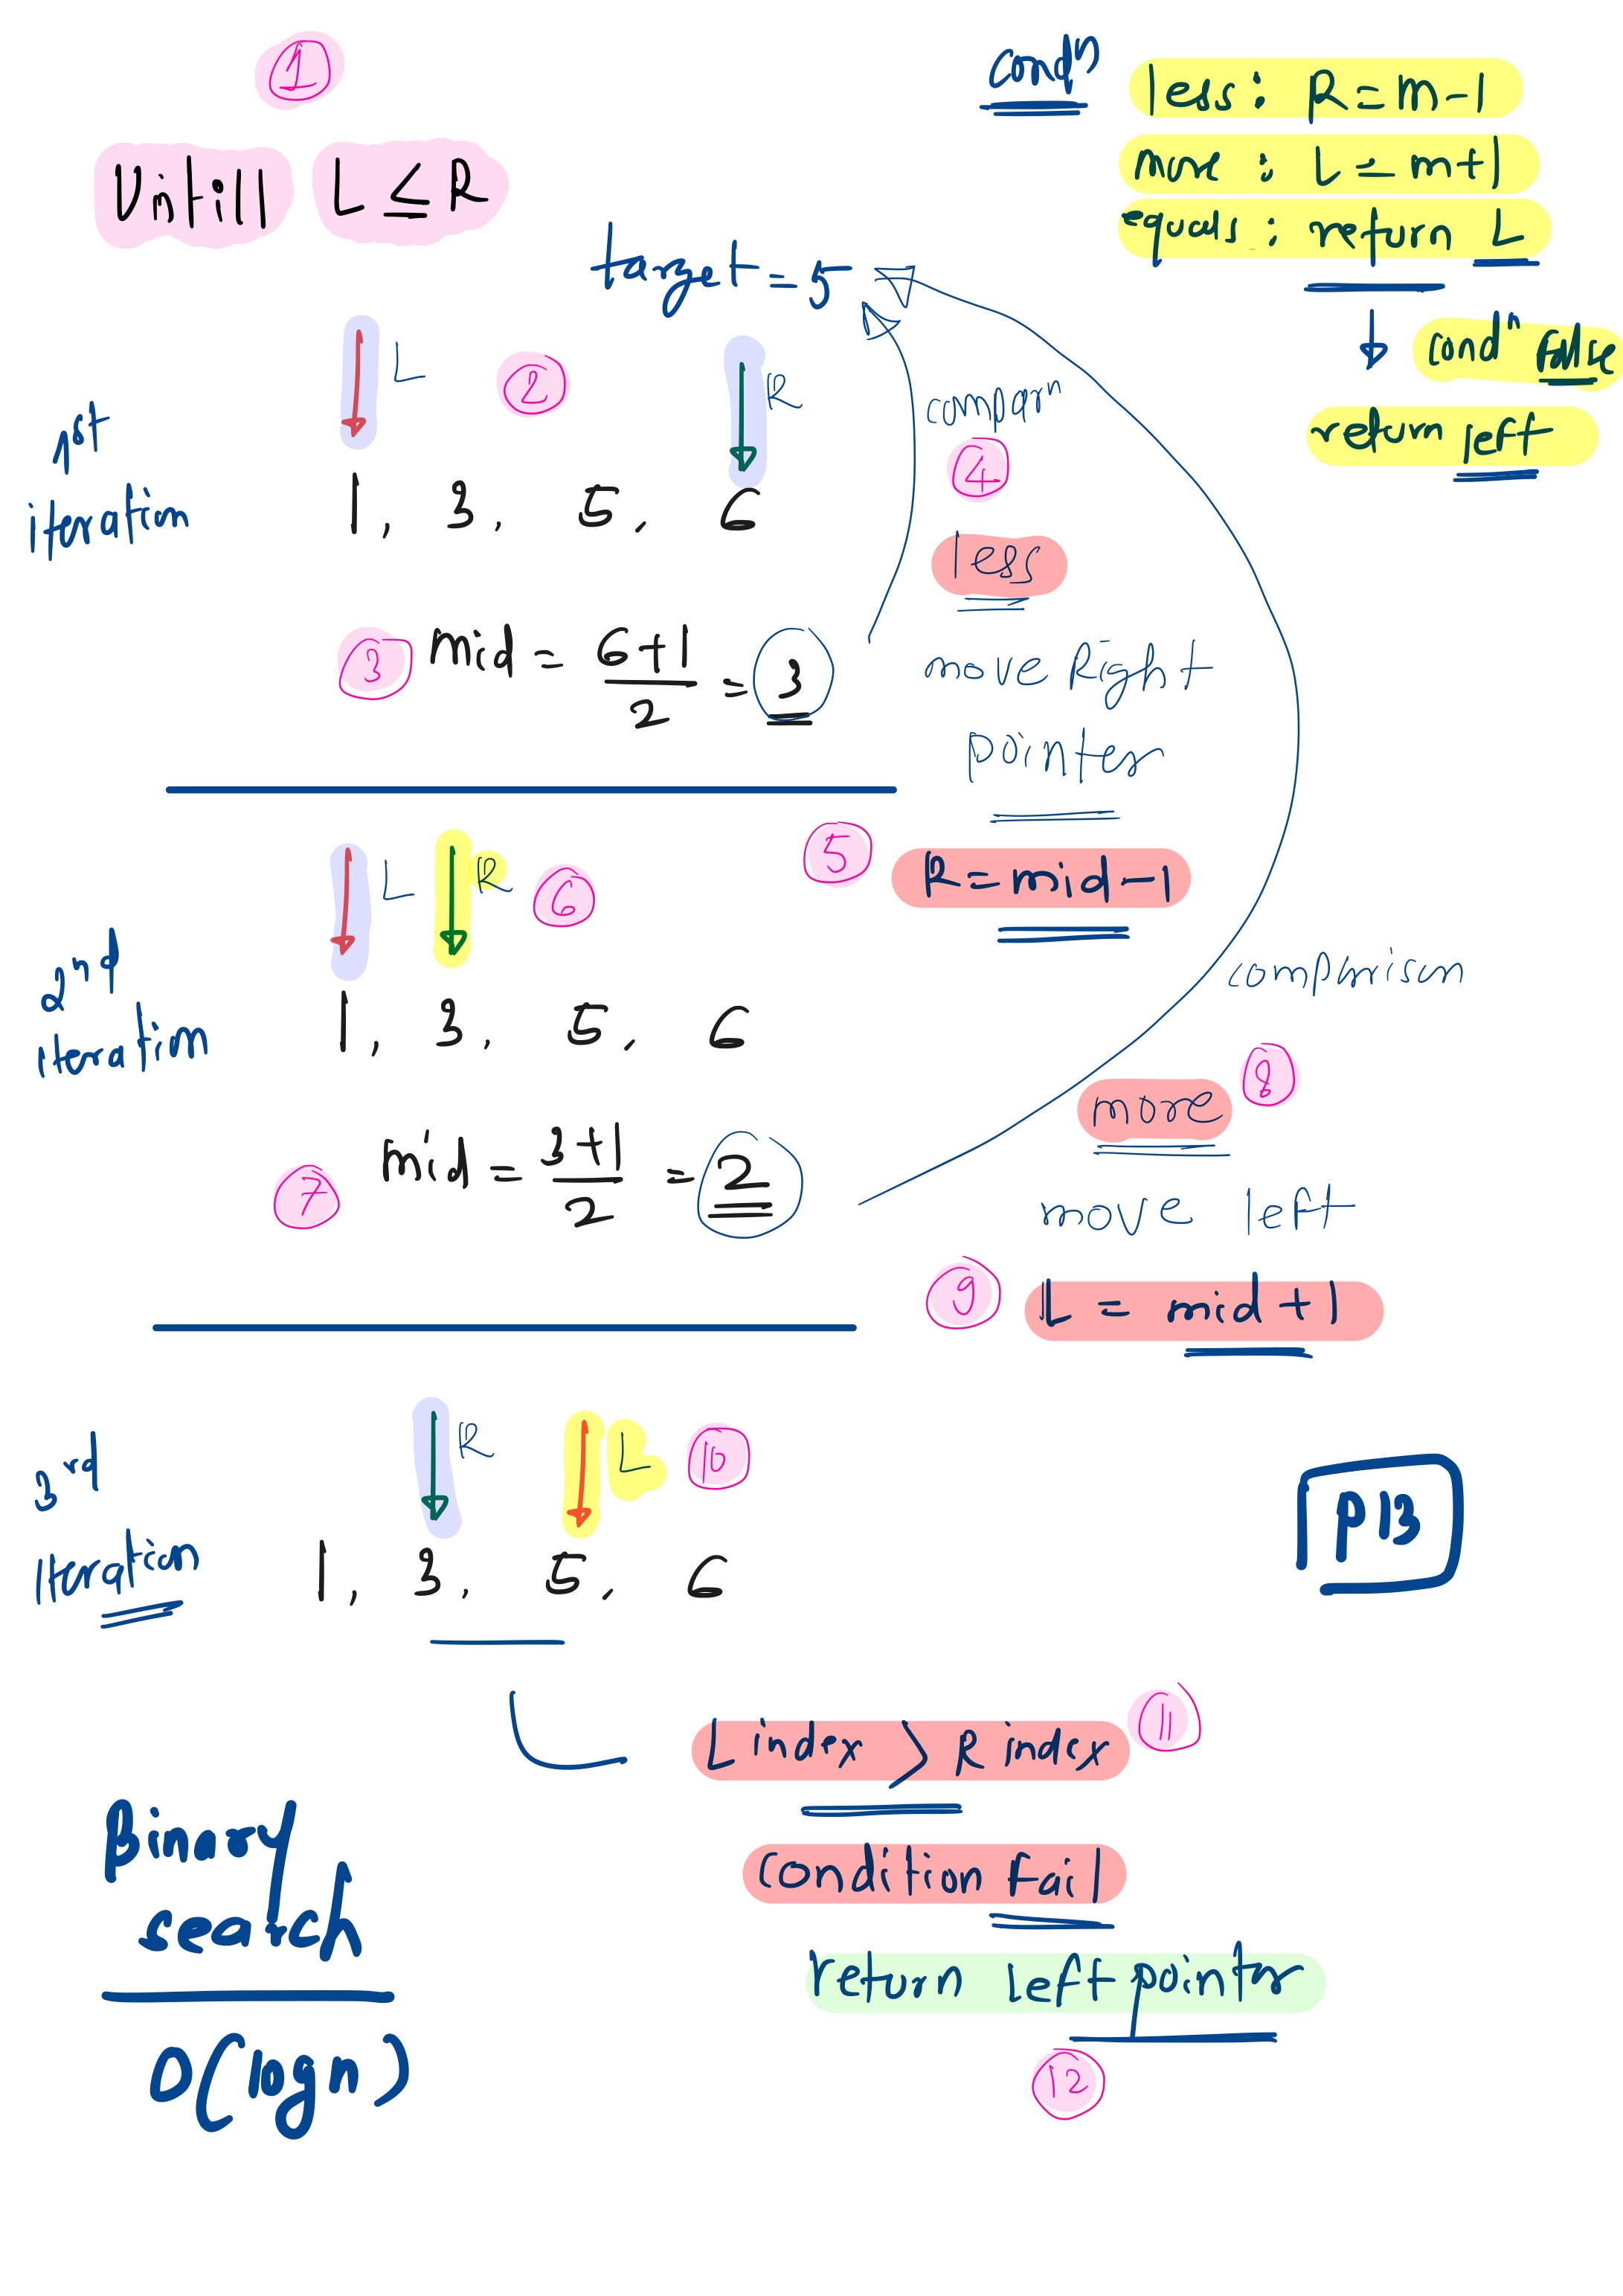 1
Untill L ≤ R
condn
less : R = m-1
more : L = m+1
equals : return L
condn false
return left
target = 5
1st iteration
L 2 R
1, 3, 5, 6
3 mid = 6+1 / 2 = 3
compan
4
less
move Right
pointer
5 R = mid-1
2nd iteration
L R 6
1, 3, 5, 6
7 mid = 3+1 / 2 = 2
comparison
8
more
move left
9 L = mid+1
3rd
iteration
R L 10
1, 3, 5, 6
P13
L index > R index 11
condition fail
return left pointer
12
Binary
search
O(logn)